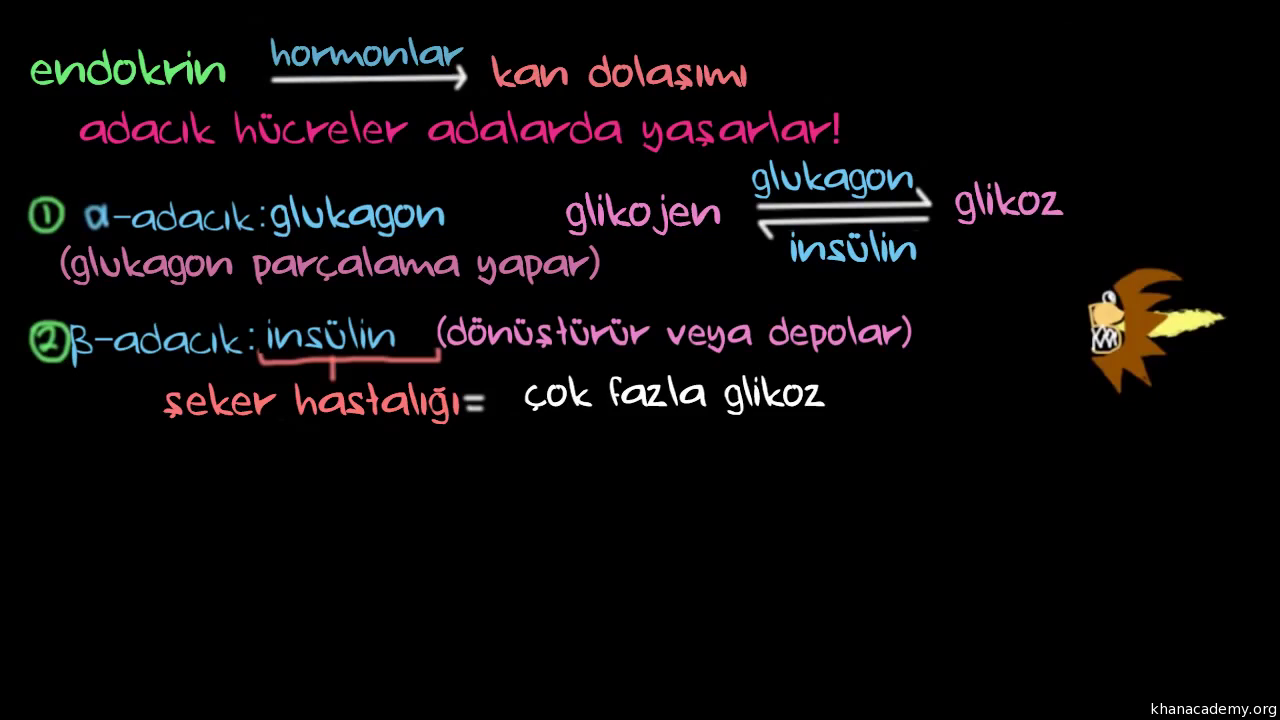 endokrin hormonlar kan dolaşımı
adacık hücreler adalarda yaşarlar!
1 α-adacık: glukagon glikojen glukagon glikoz
insülin
(glukagon parçalama yapar)
2 β-adacık: insülin (dönüştürür veya depolar)
şeker hastalığı= çok fazla glikoz
khanacademy.org